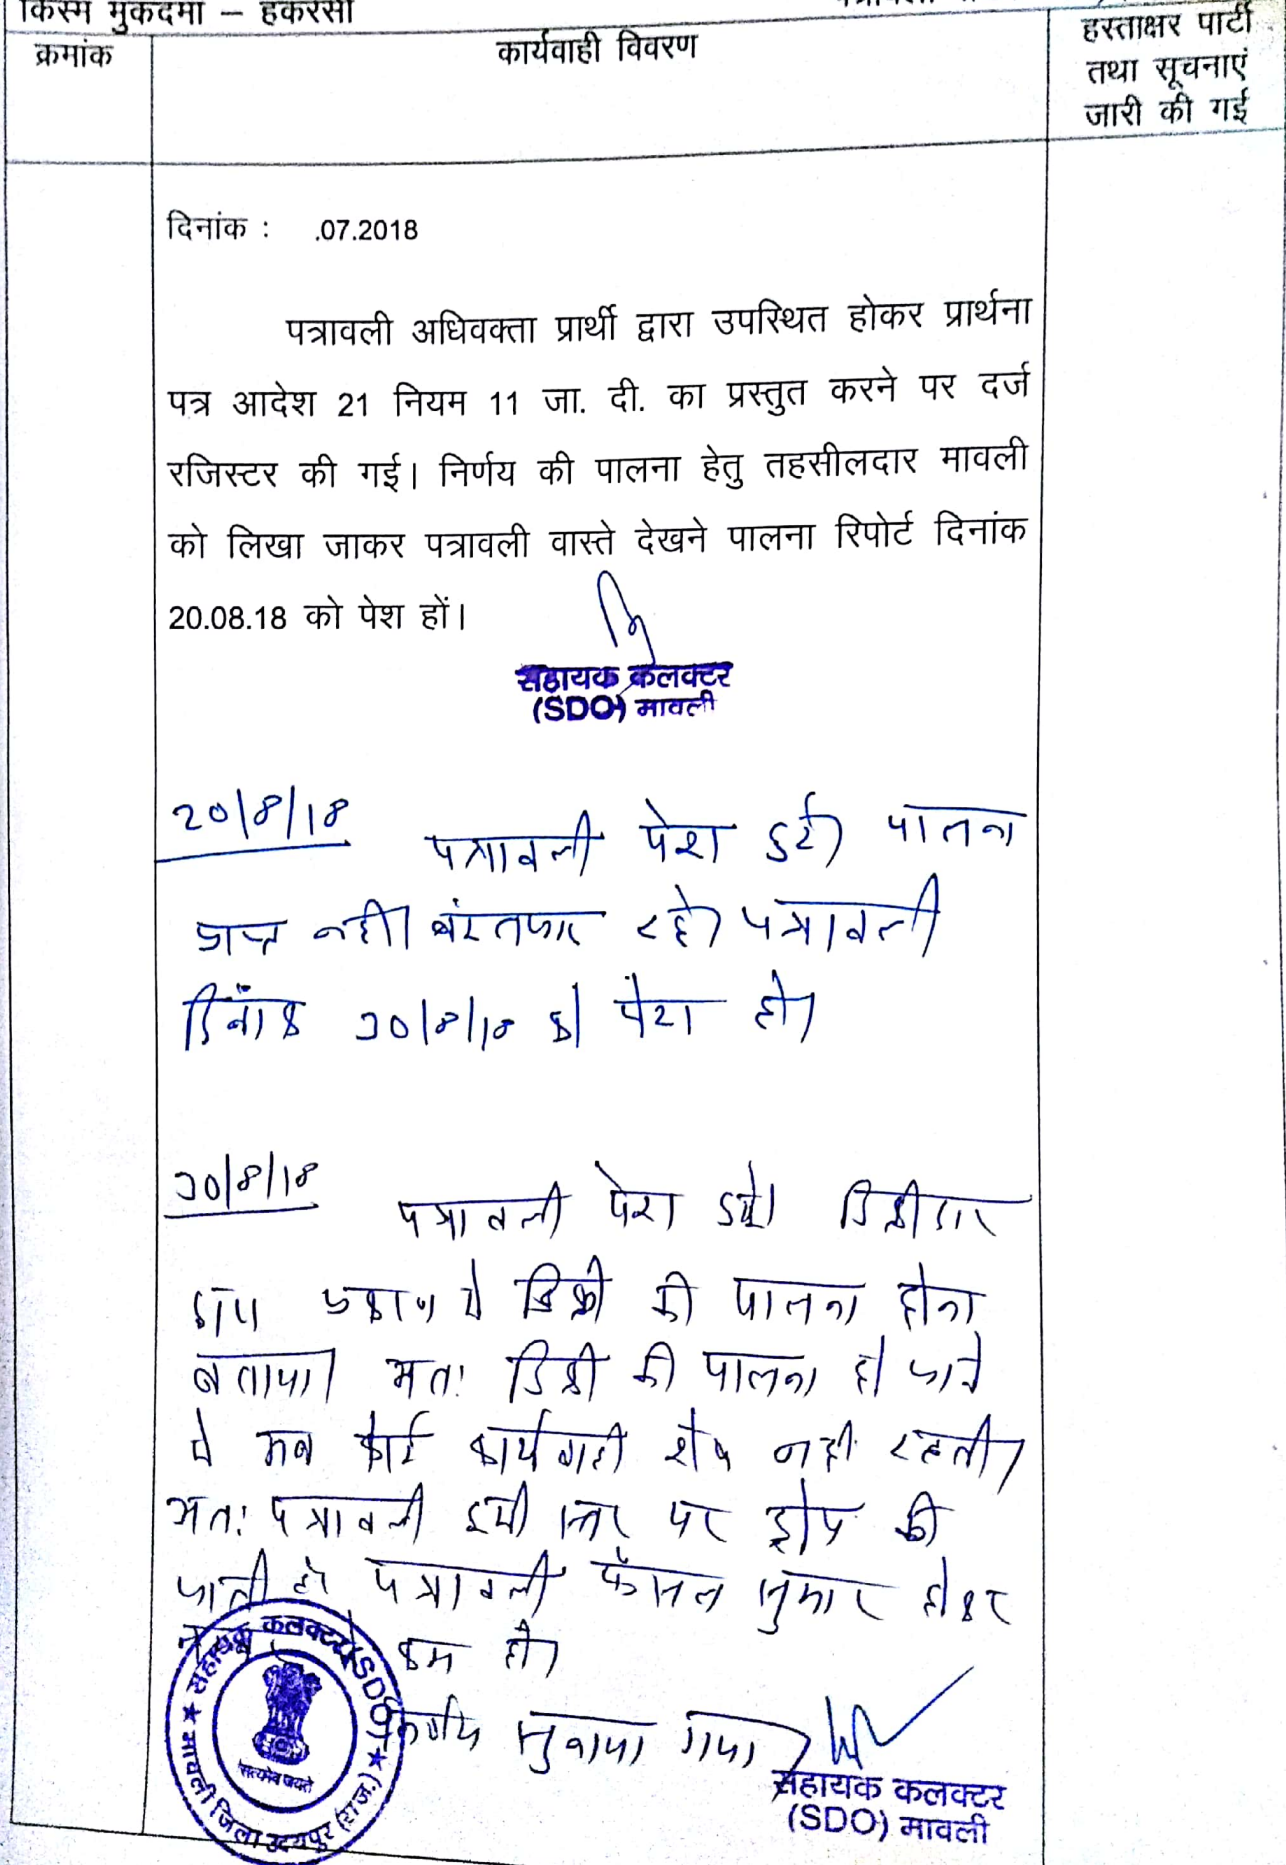 किस्म मुकदमा – हकरसी
क्रमांक
कार्यवाही विवरण
हस्ताक्षर पार्टी
तथा सूचनाएं
जारी की गई
दिनांक : .07.2018
पत्रावली अधिवक्ता प्रार्थी द्वारा उपस्थित होकर प्रार्थना
पत्र आदेश 21 नियम 11 जा. दी. का प्रस्तुत करने पर दर्ज
रजिस्टर की गई। निर्णय की पालना हेतु तहसीलदार मावली
को लिखा जाकर पत्रावली वास्ते देखने पालना रिपोर्ट दिनांक
20.08.18 को पेश हों।
सहायक कलक्टर
(SDO) मावली
20/8/18
पत्रावली पेश हुई। पालना
प्राप्त नहीं। इंतजार रहे। पत्रावली
दिनांक 30/8/18 को पेश हो।
30/8/18
पत्रावली पेश हुई। डिक्रीदार
द्वारा प्रकरण में डिक्री की पालना होना
बताया। अतः डिक्री की पालना हो जाने
से अब कोई कार्यवाही शेष नहीं रहती।
अतः पत्रावली इसी स्तर पर ड्रोप की
जाती है। पत्रावली फैसल शुमार होकर
कम हो।
निर्णय सुनाया गया।
सहायक कलक्टर
(SDO) मावली
सहायक कलक्टर (SDO)
सत्यमेव जयते
मावली जिला उदयपुर (राज.)